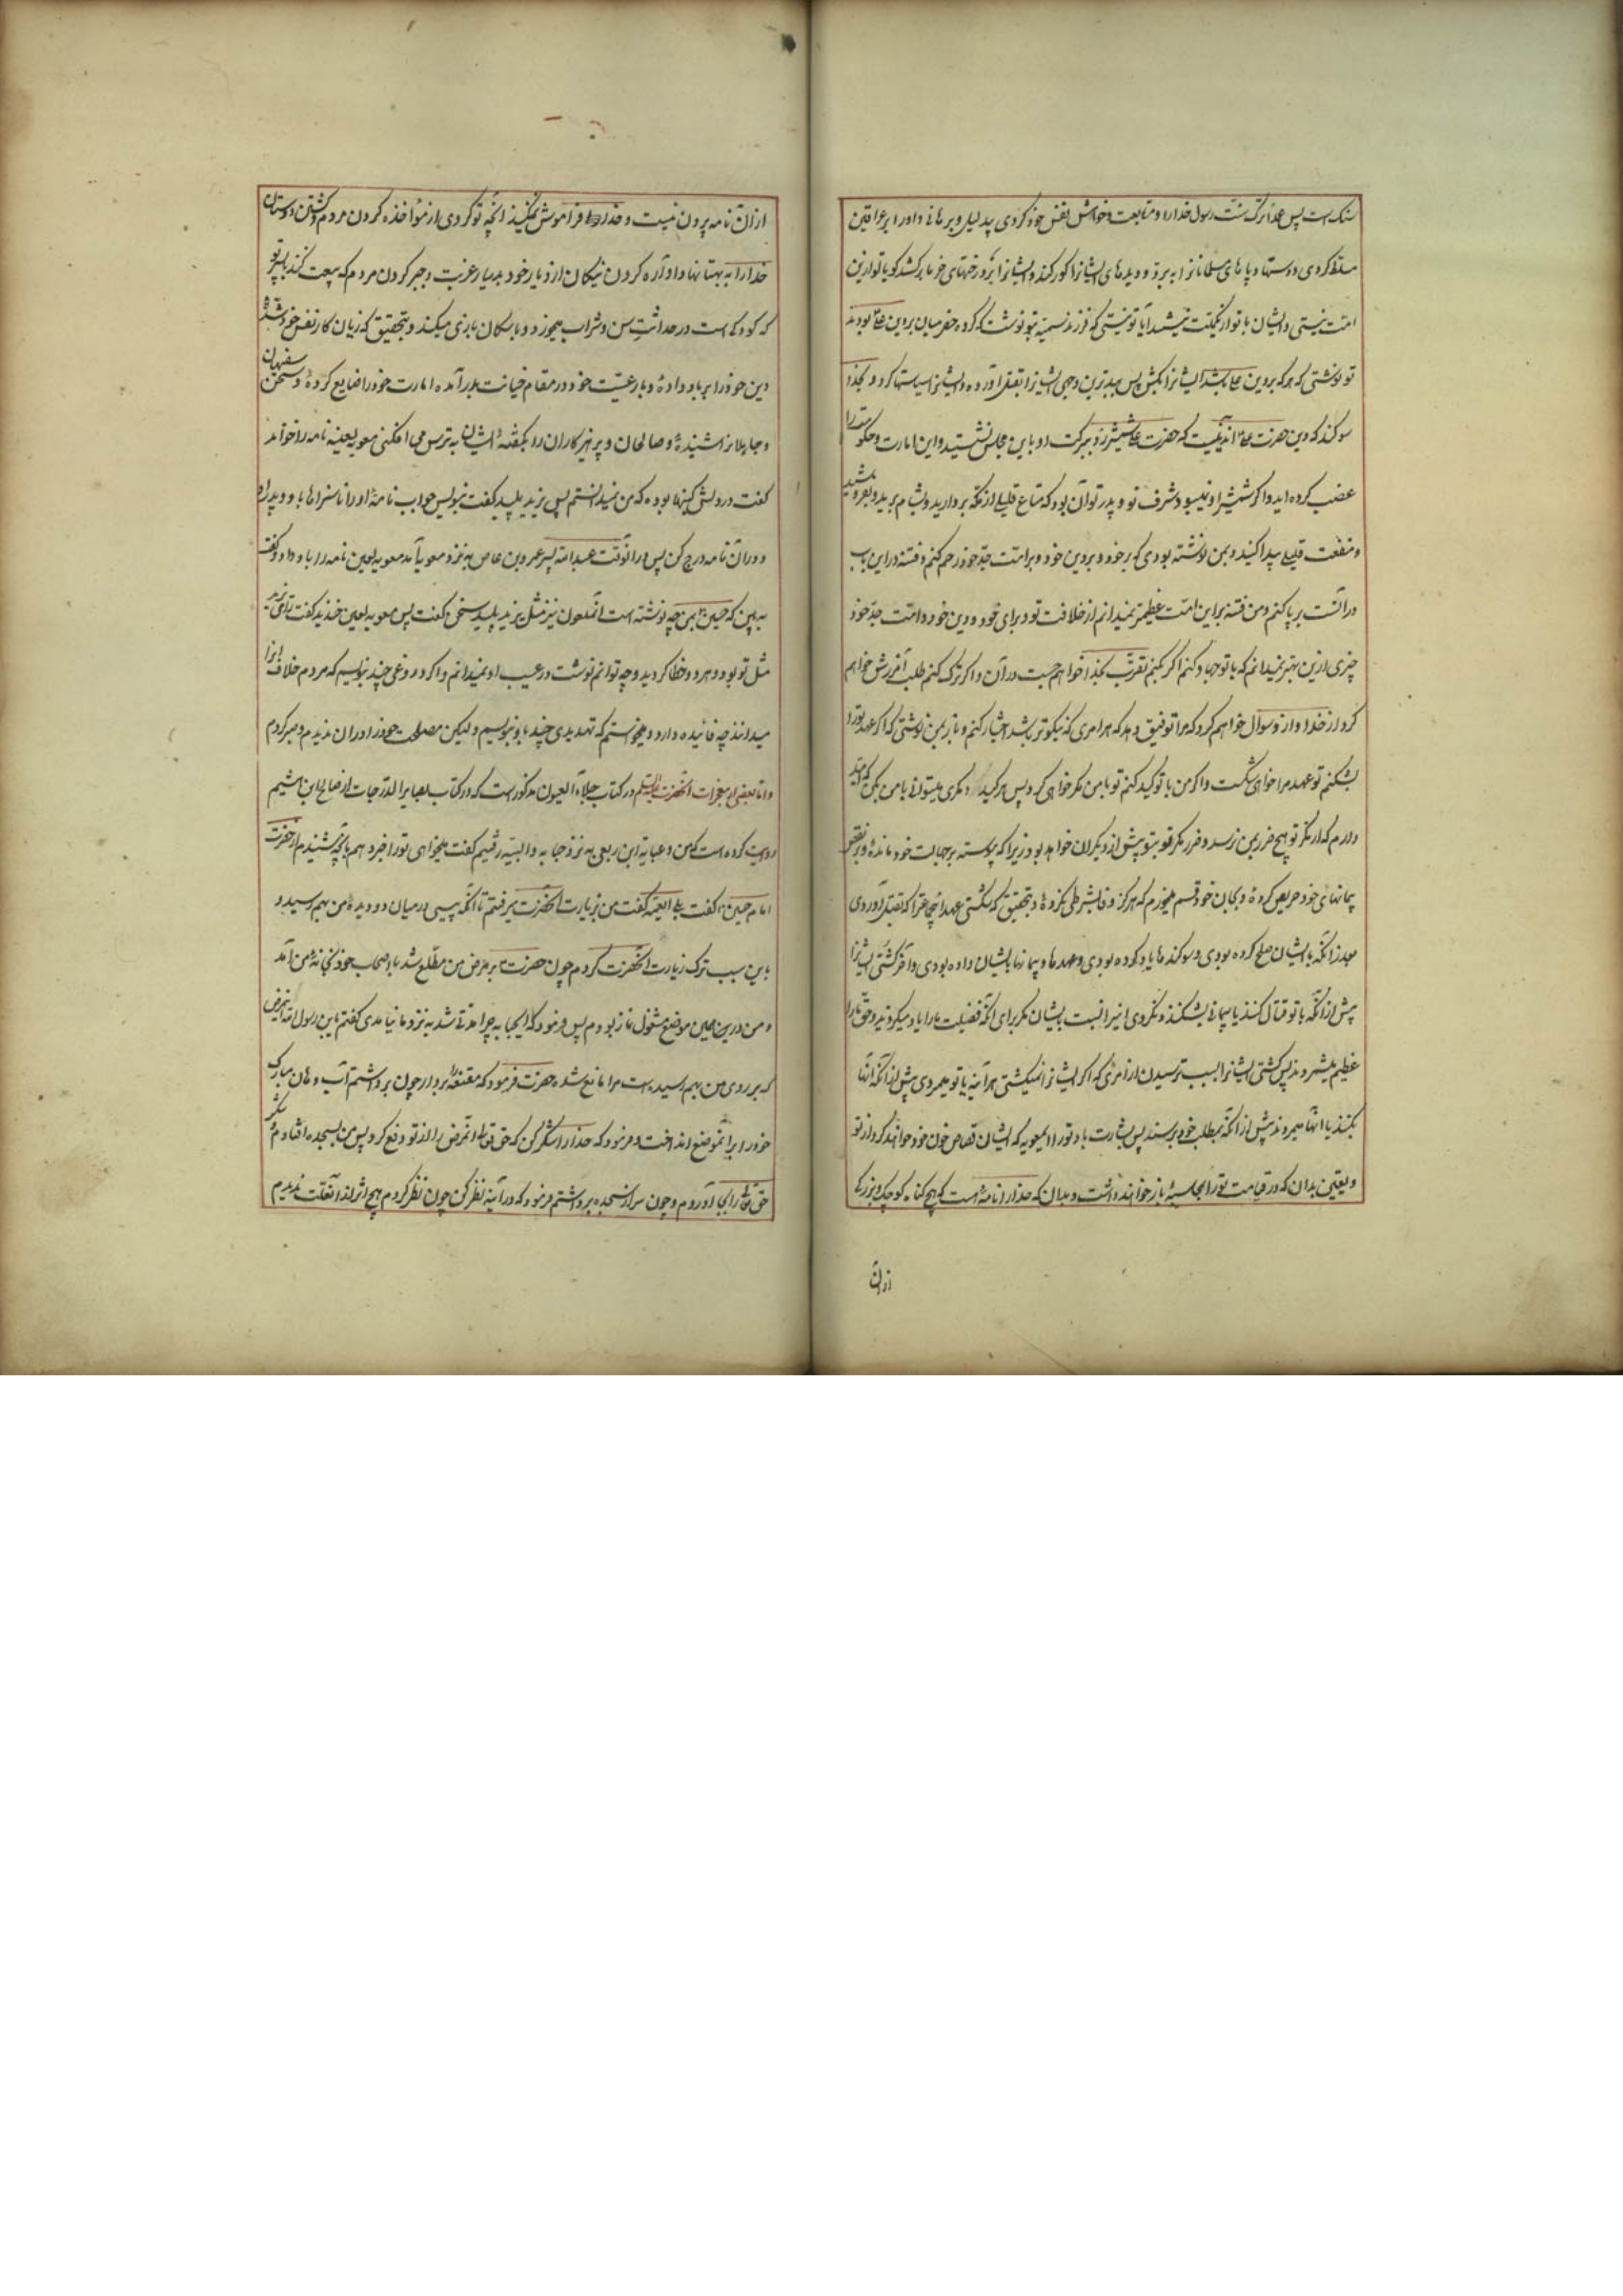 سنک است پس عمدا ترک سنت رسول خدا را و متابعت و خواهش نفس خود کردی بی دلیل و برهانی و او را بر عراقین
مسلط کردی و دستها و پاهای مسلمانان را ببرد و دیدهای ایشان را کور کند و ایشان را بر درختهای خرما برکشد گویا تو از این
امت نیستی و ایشان با تو از یکملت نیستند آیا تو نیستی که فرزند سمیه بتو نوشت که گروه حضرمیان بر دین علی بودند
تو نوشتی که هر که بر دین علی باشد ایشان را بکش پس ببدترین وجهی ایشان را بقتل آورد و ایشان را سیاستها کرد و بخدا
سوکند که دین حضرت علی آن دینیست که حضرت علی شمشیر زد و ببرکت او باین مجلس نشستید و این امارت و حکومت را
غصب کرده اید و اگر شمشیر او نمیبود شرف تو و پدر تو آن بود که متاع قلیلی از مکه بردارید و بشام برید و بفروشید
و منفعت قلیلی پیدا کنید و بمن نوشته بودی که بر خود و بر دین خود و بر امت جد خود رحم کنم و فتنه در این باب
در امت برپا نکنم و من فتنه بر این امت عظیمتر نمیدانم از خلافت تو و برای خود و دین خود و امت جد خود
چیزی از این بهتر نمیدانم که با تو جهاد کنم اگر بکنم تقرب بخدا خواهم جست در آن و اگر ترک کنم طلب آمرزش خواهم
کرد از خدا و از او سوال خواهم کرد که مرا توفیق دهد که هر امری که نیکوتر باشد اختیار کنم و باز بمن نوشتی که اگر عهد تو را
بشکنم تو عهد مرا خواهی شکست و اگر من با تو کید کنم تو با من مکر خواهی کرد پس هر کید و مکری میتوانی با من بکن که امید
دارم که از مکر تو هیچ ضرر بمن نرسد و ضرر مکر تو بتو پیش از دیگران خواهد بود زیرا که پیوسته بر جهالت خود مانده و بر نقض
پیمانهای خود حریص کرده و بجان خود قسم میخورم که هرگز وفا بشرطی نکرده و بتحقیق که شکستی عهد آنجماعتی را که بقتل آوردی
بعد از آنکه با ایشان صلح کرده بودی و سوکندها یاد کرده بودی و عهدها و پیمانها بایشان داده بودی و آخر کشتی ایشان را
پیش از آنکه با تو قتال کنند یا پیمانی بشکنند و نکردی این را نسبت بایشان مگر برای آنکه فضیلت ما را یاد میکردند و حق ما را
عظیم میشمردند پس کشتی ایشان را بسبب ترسیدن از امری که اگر ایشان را نمیکشتی هر آینه یا تو میمردی پیش از آنکه آنها
بکنند یا آنها میمردند پیش از آنکه بمطلب خود برسند پس بشارت باد تو را ای معویه که ایشان قصاص خون خود خواهند کرد از تو
و یقین بدان که در قیامت تو را بمحاسبه باز خواهند داشت و بدان که خدا را نامه است که هیچ گناه کوچک و بزرگ
از آن
از آن نامه بیرون نیست و خدا فراموش نمیکند آنچه تو کردی از مؤاخذه کردن مردم و کشتن دوستان
خدا را به بهتانها و آواره کردن نیکان از دیار خود بدیار غربت و جبر کردن مردم که بیعت کنند با پسر تو
که کودکی است در حداثت سن و شراب میخورد و با سگان بازی میکند و بتحقیق که زیان کار نفس خود شده
دین خود را بر باد داده و با رعیت خود در مقام خیانت بدر آمده و امارت خود را ضایع کرده و سخن سفیهان
و جاهلان را شنیده و صالحان و پرهیزکاران را بگفته ایشان به ترس می افکنی معویه لعینه نامه را خواند
گفت در دلش کینها بوده که من نمیدانستم پس یزید پلید گفت بنویس جواب نامه او را ناسزاها باو و پدر او
در آن نامه درج کن پس در آنوقت عبدالله پسر عمرو بن عاص به نزد معویه آمد معویه لعین نامه را باو داد و گفت
به بین که حسین بمن چه نوشته است آنملعون نیز مثل یزید پلید سخنی گفت پس معویه لعین خندید گفت رای یزید
مثل تو بود و هر دو خطا کردید و چه توانم نوشت در عیب او نمیدانم و اگر دروغی چند بنویسم که مردم خلاف آنرا
میدانند چه فائده دارد و میخواستم که تهدیدی چند باو بنویسم ولیکن مصلحت خود را در آن ندیدم و صبر کردم
و اما بعضی از معجزات آنحضرت علیه السلم در کتاب جلاء العیون مذکور است که در کتاب بصایر الدرجات از صالح ابن میثم
روایت کرده است که من و عبایه ابن ربعی به نزد حبابه والبیه رفتیم گفت میخواهی تو را خبر دهم بانچه شنیدم از حضرت
امام حسین گفت بلی ای عمه گفت من بزیارت آنحضرت میرفتم تا آنکه پیسی در میان دو دیده من بهم رسید و
باین سبب ترک زیارت آنحضرت کردم چون حضرت بر مرض من مطلع شد با اصحاب خود بخانه من آمد
و من در همین موضع مشغول نماز بودم پس فرمود که ای حبابه چرا مدتی شد به نزد ما نیامدی گفتم یابن رسول الله این مرض
که بر روی من بهم رسیده است مرا مانع شده حضرت فرمود که مقنعه را بردار چون برداشتم آب دهان مبارک
خود را بر آنموضع انداخت و فرمود که خدا را شکر کن که حق تعالی آنمرض را از تو دفع کرد پس من بسجده افتادم و شکر
حق تعالی را بجا آوردم و چون سر از سجده برداشتم فرمود که در آینه نظر کن چون نظر کردم هیچ اثر از آنعلت ندیدم